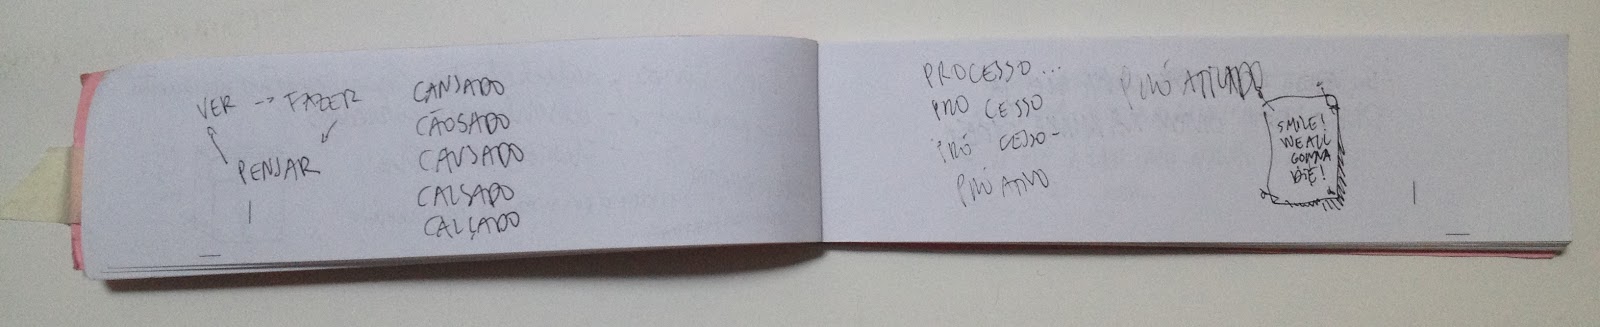 VER → FAZER
PENSAR
CANSADO
CÃOSADO
CAUSADO
CALSADO
CALÇADO
PROCESSO...
PRO CESSO
PRÓ CESSO-
PRÓ ATIVO
PRÓ ATIVADO
SMILE!
WE ALL
GONNA
DIE!